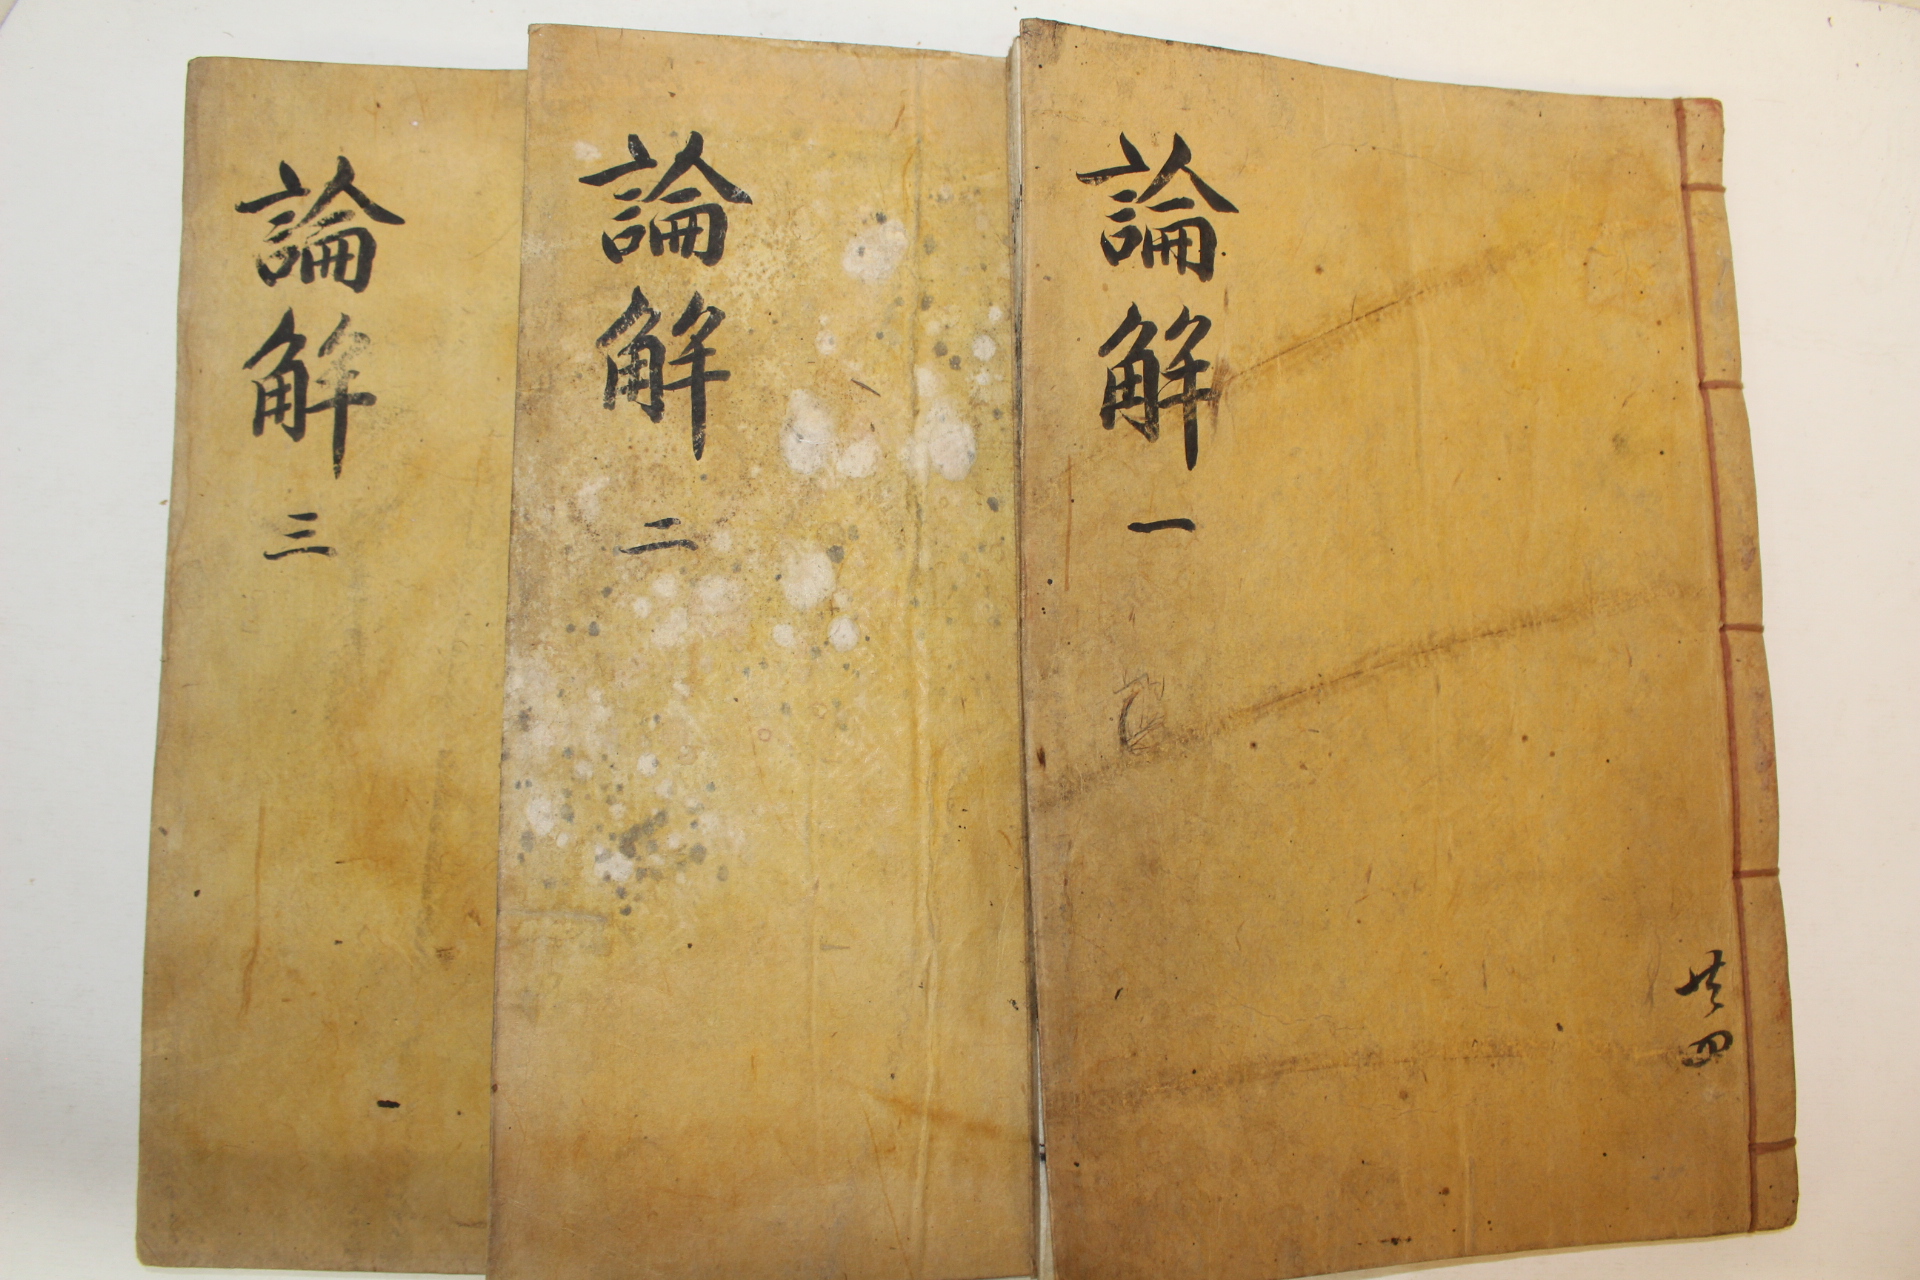 論解 一
共四
論解 二
論解 三